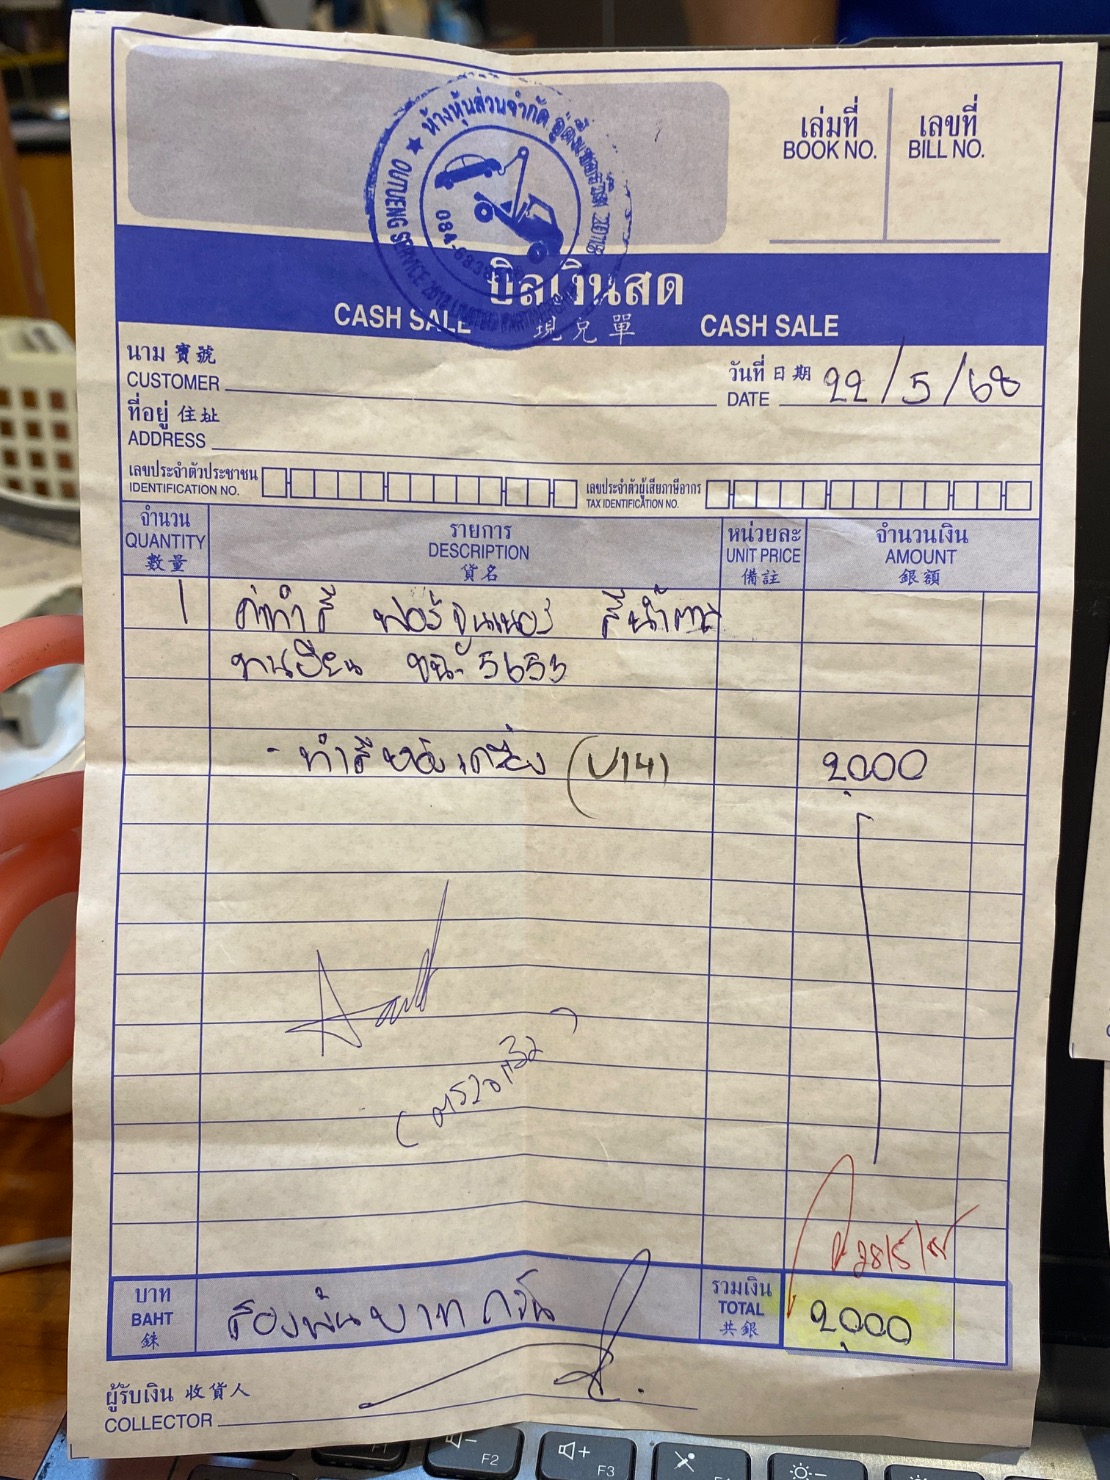 ห้างหุ้นส่วนจำกัด
เล่มที่ เลขที่
BOOK NO. BILL NO.
บิลเงินสด
CASH SALE 現兑單 CASH SALE
นาม 寶號
CUSTOMER
วันที่ 日期
DATE 22/5/68
ที่อยู่ 住址
ADDRESS
เลขประจำตัวประชาชน
IDENTIFICATION NO.
เลขประจำตัวผู้เสียภาษีอากร
TAX IDENTIFICATION NO.
จำนวน รายการ หน่วยละ จำนวนเงิน
QUANTITY DESCRIPTION UNIT PRICE AMOUNT
數量 貨名 備註 銀額
1 ค่าทำสี ฟอร์จูนเนอร์ สีน้ำตาล
ทะเบียน 5653
- ทำสี (U141) 2,000
28/5/68
บาท รวมเงิน
BAHT สองพันบาทถ้วน TOTAL 2,000
銖 共銀
ผู้รับเงิน 收貨人
COLLECTOR
F1 F2 F3